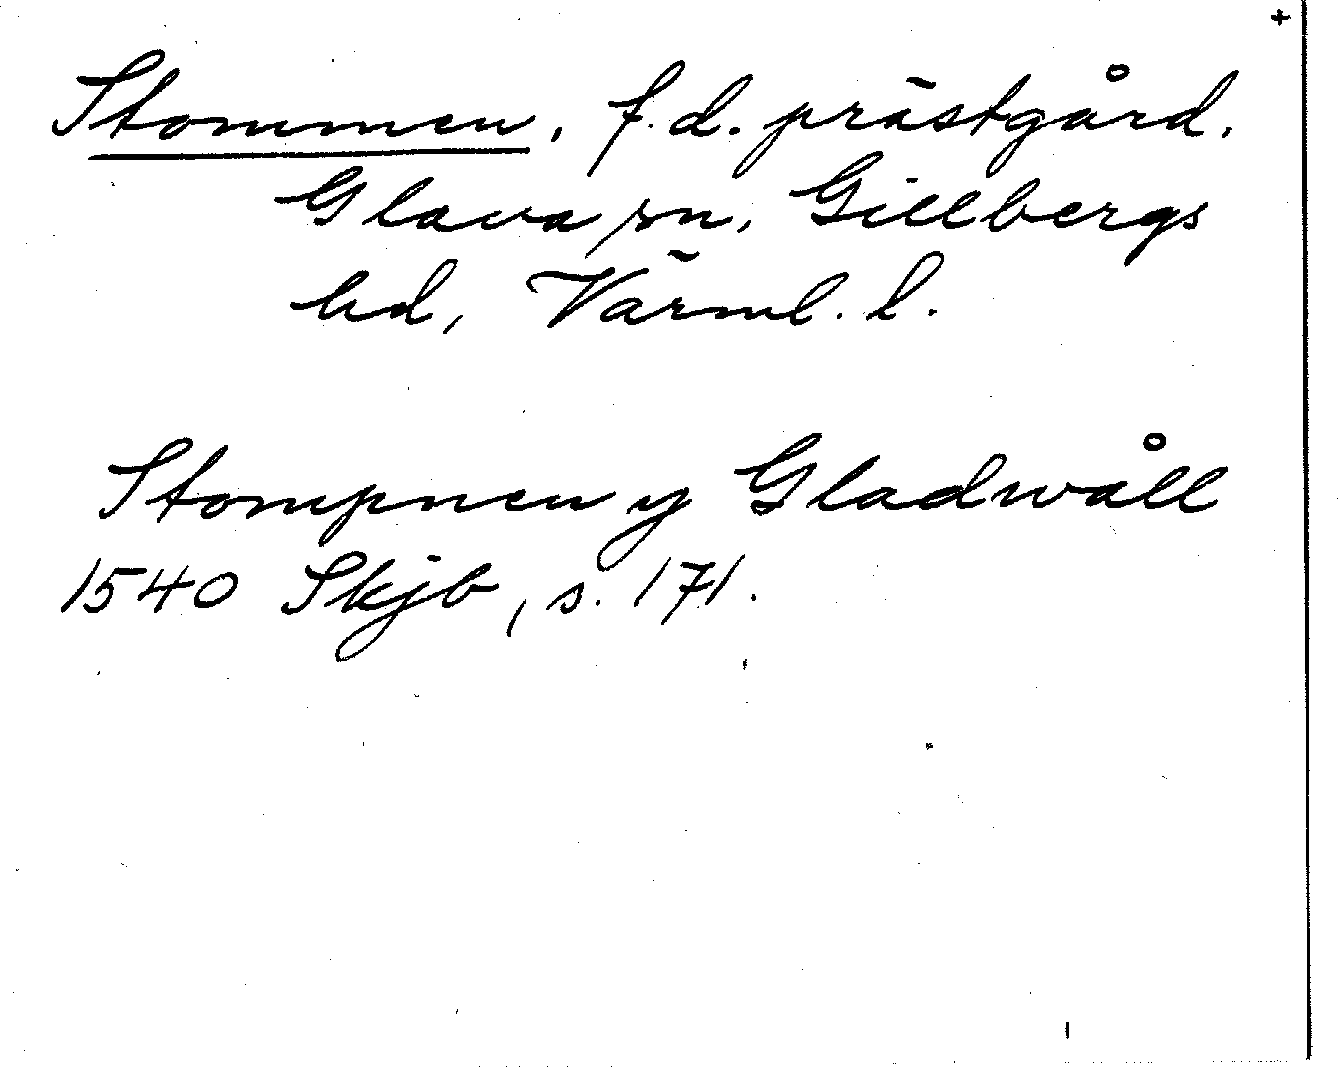 +
Stommen, f.d. prästgård,
Glava sn, Gillbergs
hd, Värml. l.
Stompnen y Gladwåll
1540 Skjb, s. 171.